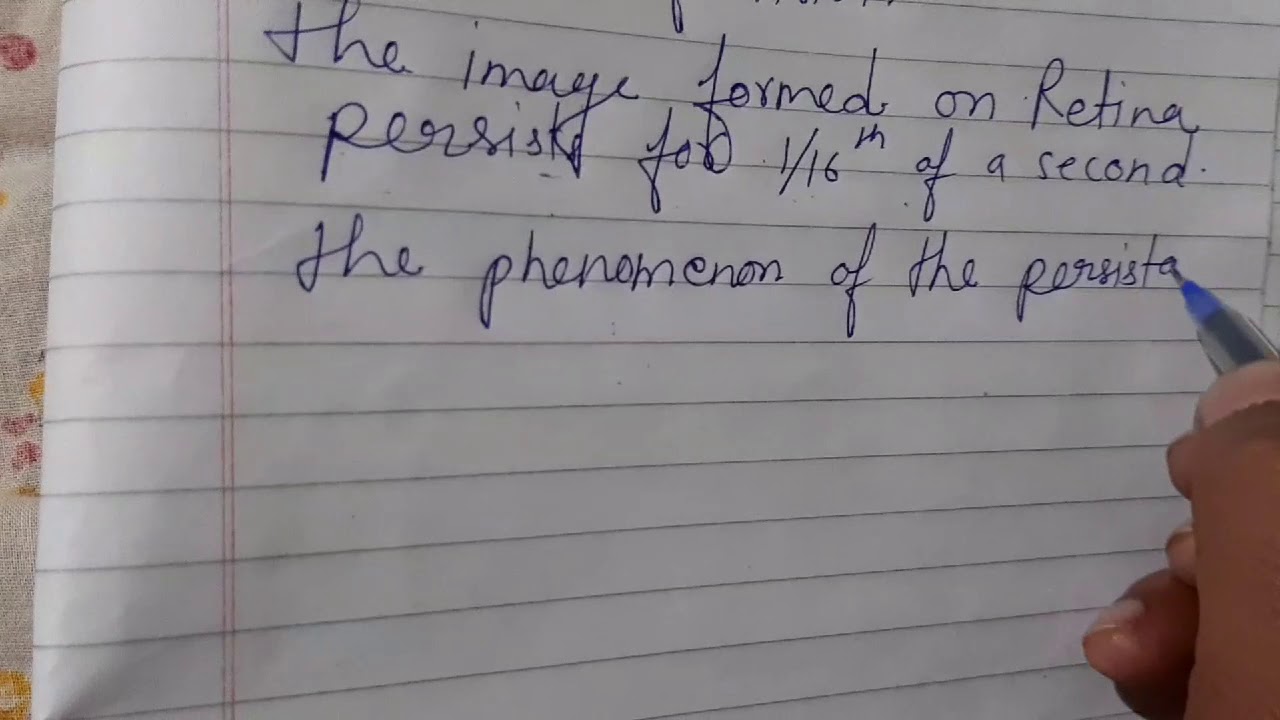 the image formed on Retina
persists for 1/16th of a second.
the phenomenon of the persista